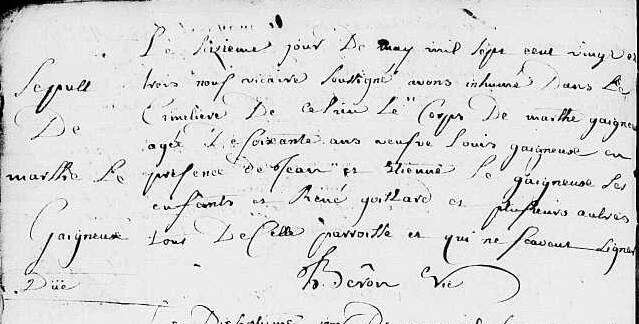 Le sisieme jour De may mil sept cent vingt et
Sepult trois nous vicaire soussigné avons inhumé Dans le
De Cimetiere De ce lieu Le Corps De marthe gaigneu
agée De soixante ans veufve Louis gaigneuse en
marthe Le presence de Jean et Etienne Le gaigneuse Ses
enfants et René goillard et plusieurs autres
Gaigneuse tous De Cette parroisse et qui ne scavent signer
Düe Beron Vic